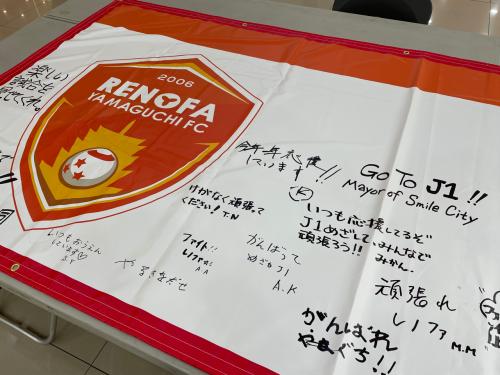 楽しい
試合を
してくれ。
2006
RENOFA
YAMAGUCHI FC
今年も応援
しています!!
GO TO J1!!
Mayor of Smile City
けがなく頑張って
ください! T.N
いつも応援してるぞ
J1めざしてみんなで
頑張ろう!!
みかん.
いつもおうえん
しています♡
やるきをだせ
ファイト!!
レノファ
A A
がんばって
めざせJ1
A.K
頑張れ
レノファ M.M
がんばれ
やまぐち!!